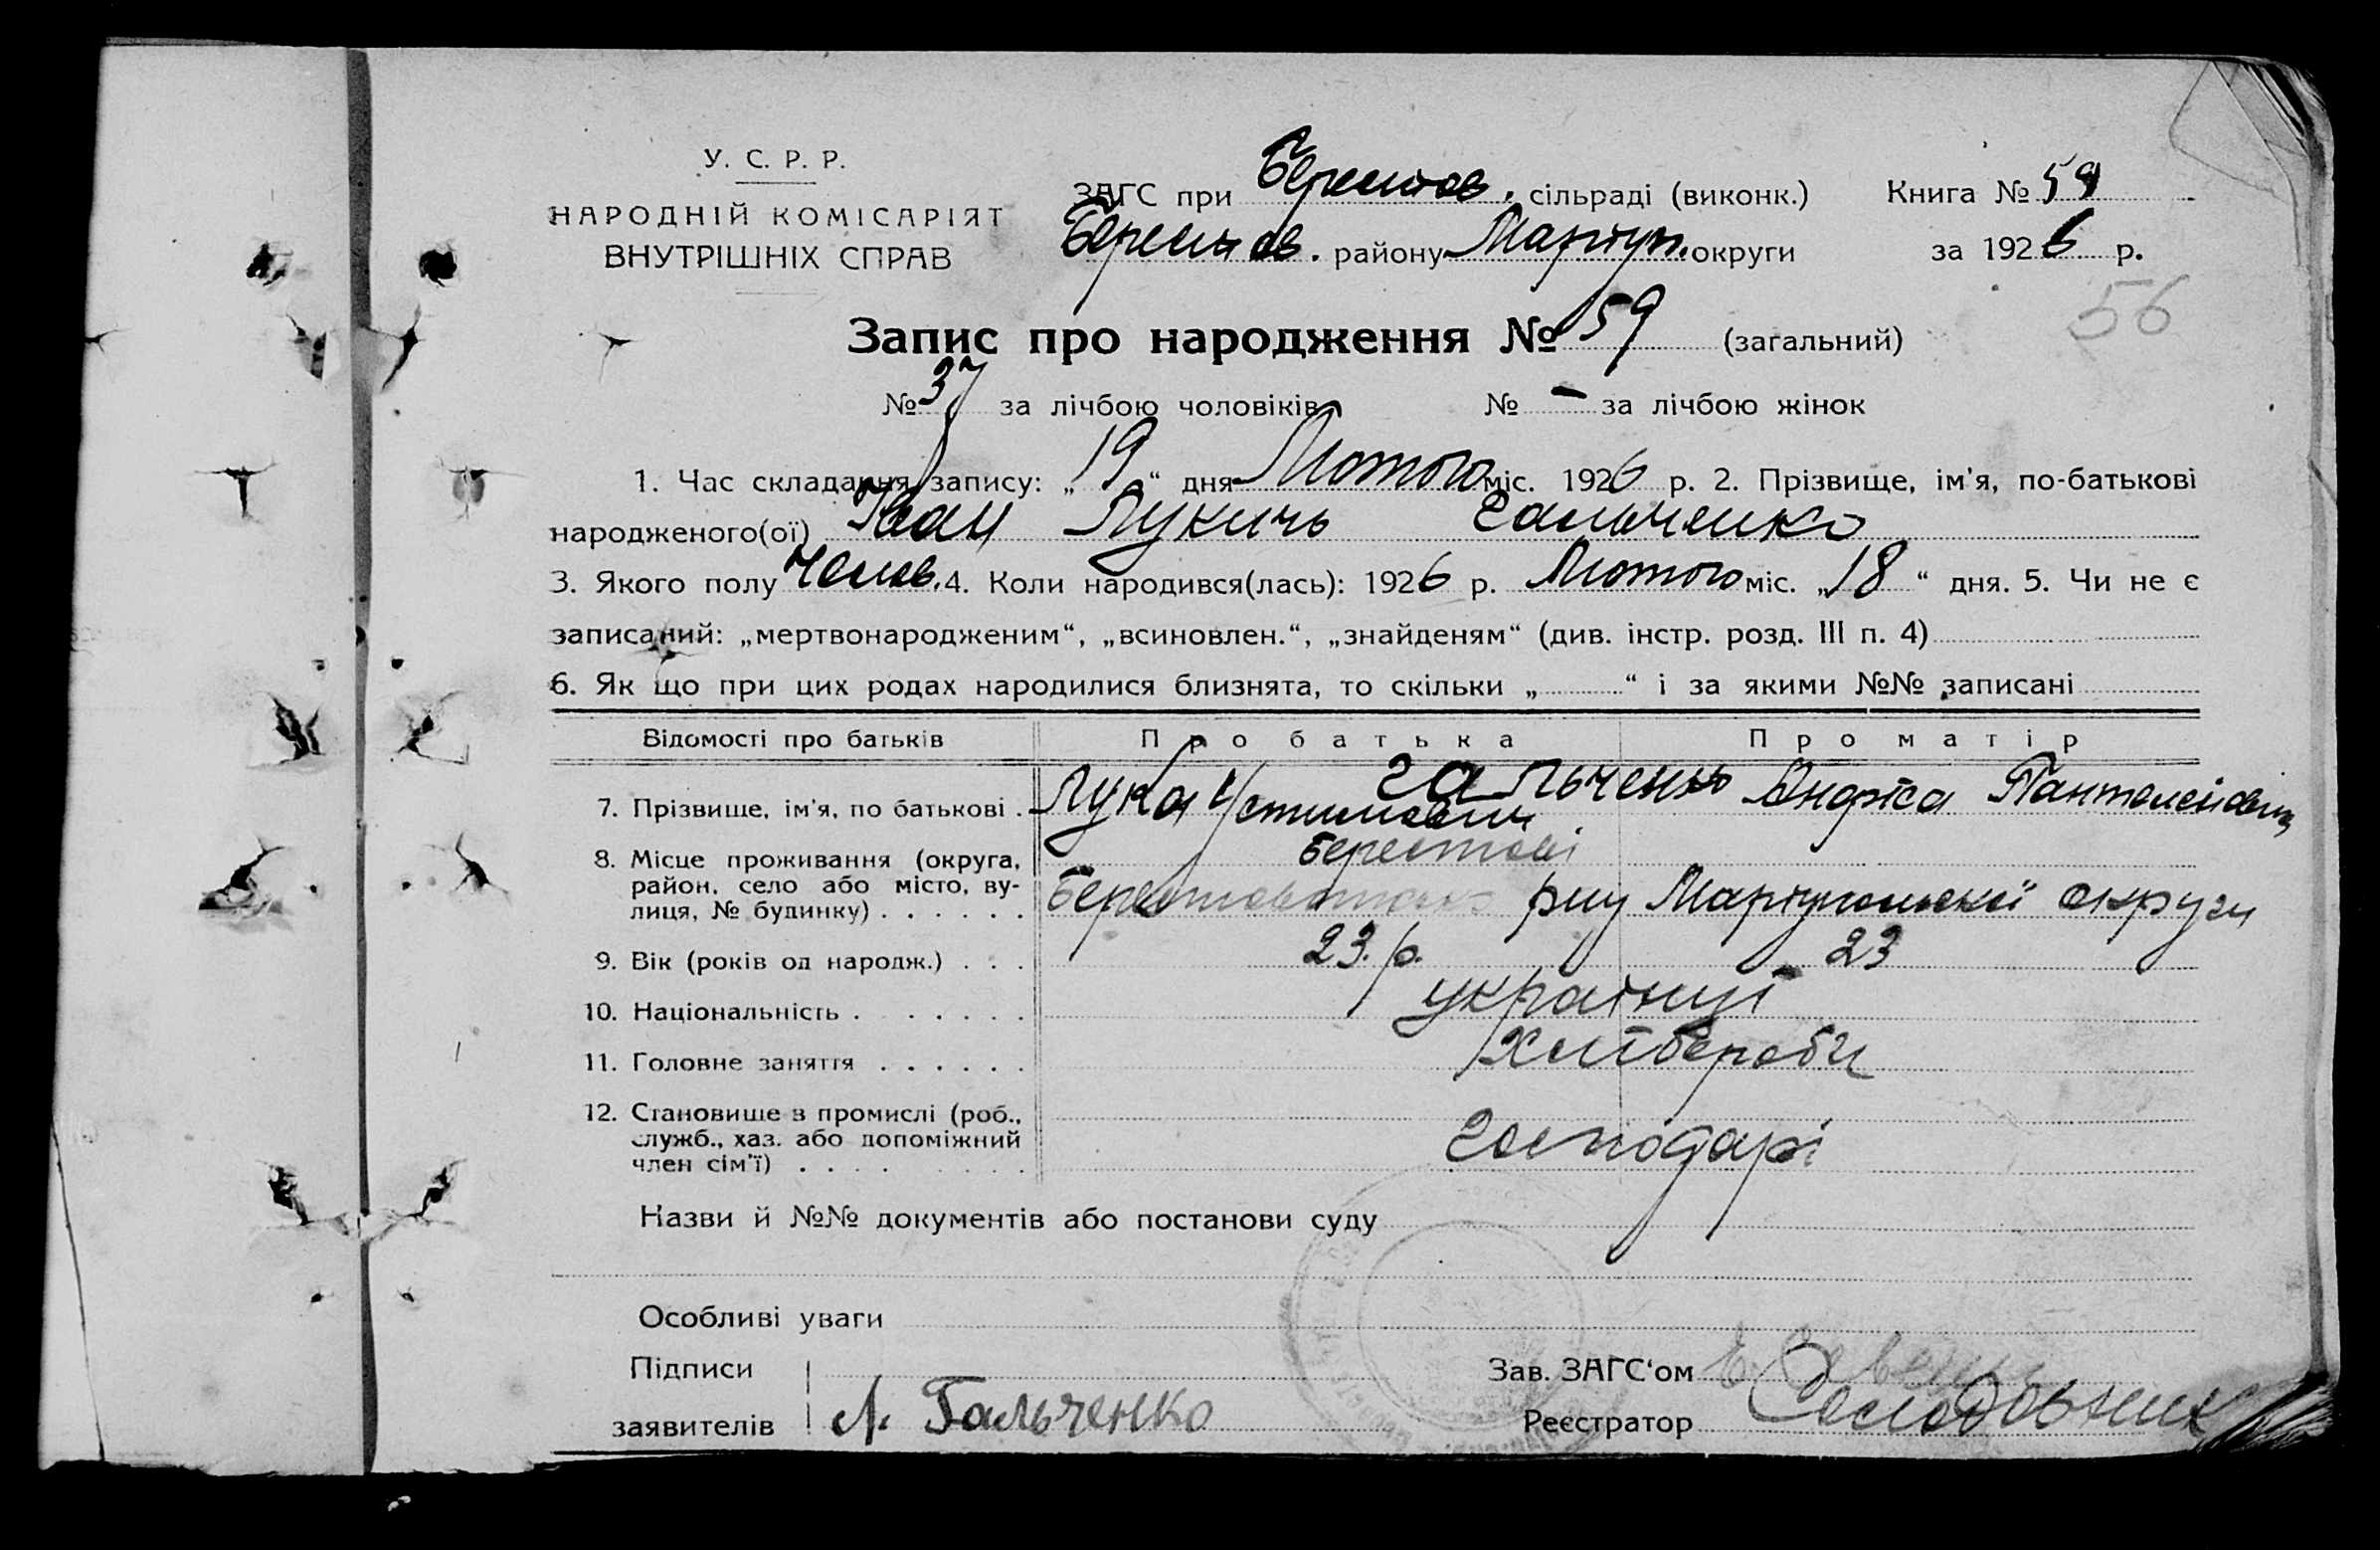 У. С. Р. Р.
НАРОДНІЙ КОМІСАРІЯТ
ВНУТРІШНІХ СПРАВ
ЗАГС при Берестов. сільраді (виконк.) Книга № 59
Берестов. району Маріуп. округи за 1926 р.
56
Запис про народження № 59 (загальний)
№ 37 за лічбою чоловіків № – за лічбою жінок
1. Час складання запису: „19“ дня Лютого міс. 1926 р. 2. Прізвище, ім'я, по-батькові
народженого(ої) Іван Лукичь Гальченко
3. Якого полу Чолов. 4. Коли народився(лась): 1926 р. Лютого міс. „18“ дня. 5. Чи не є
записаний: „мертвонародженим“, „всиновлен.“, „знайденям“ (див. інстр. розд. III п. 4)
6. Як що при цих родах народилися близнята, то скільки „ “ і за якими №№ записані
Відомості про батьків Про батька Про матір
7. Прізвище, ім'я, по батькові . Лука Устимович Гальченко
8. Місце проживання (округа, район, село або місто, вулиця, № будинку) . . . . . . Берестові
рну Маріупольскої округи
9. Вік (років од народж.) . . . 23 р. 23
10. Національність . . . . . . . українці
11. Головне заняття . . . . . . Хліббороби
12. Становище в промислі (роб., служб., хаз. або допоміжний член сім'ї) . . . . господарі
Назви й №№ документів або постанови суду
Особливі уваги
Підписи
заявителів Л. Гальченко
Зав. ЗАГС'ом
Реєстратор Солодовник